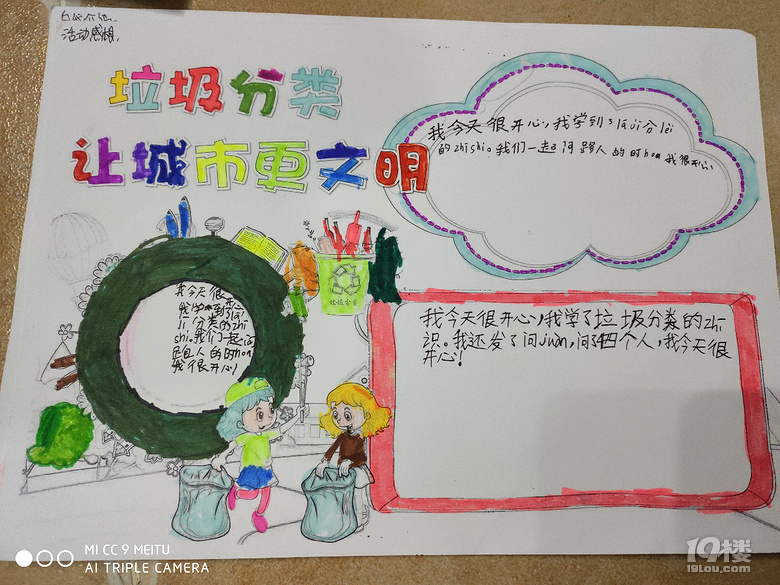 活动感想
垃圾分类
让城市更文明
我今天很开心,我学到了lāji分lèi
的zhishio我们一起问路人的时hou我很开心。
垃圾分类
我今天很开
ji分类的zhi
shio我们一起问
人的时hou
我很开心!
我今天很开心,我学了垃圾分类的zhi
识。我还发了问juàn,问了四个人,我今天很
开心!
MI CC 9 MEITU
AI TRIPLE CAMERA
19楼
19lou.com